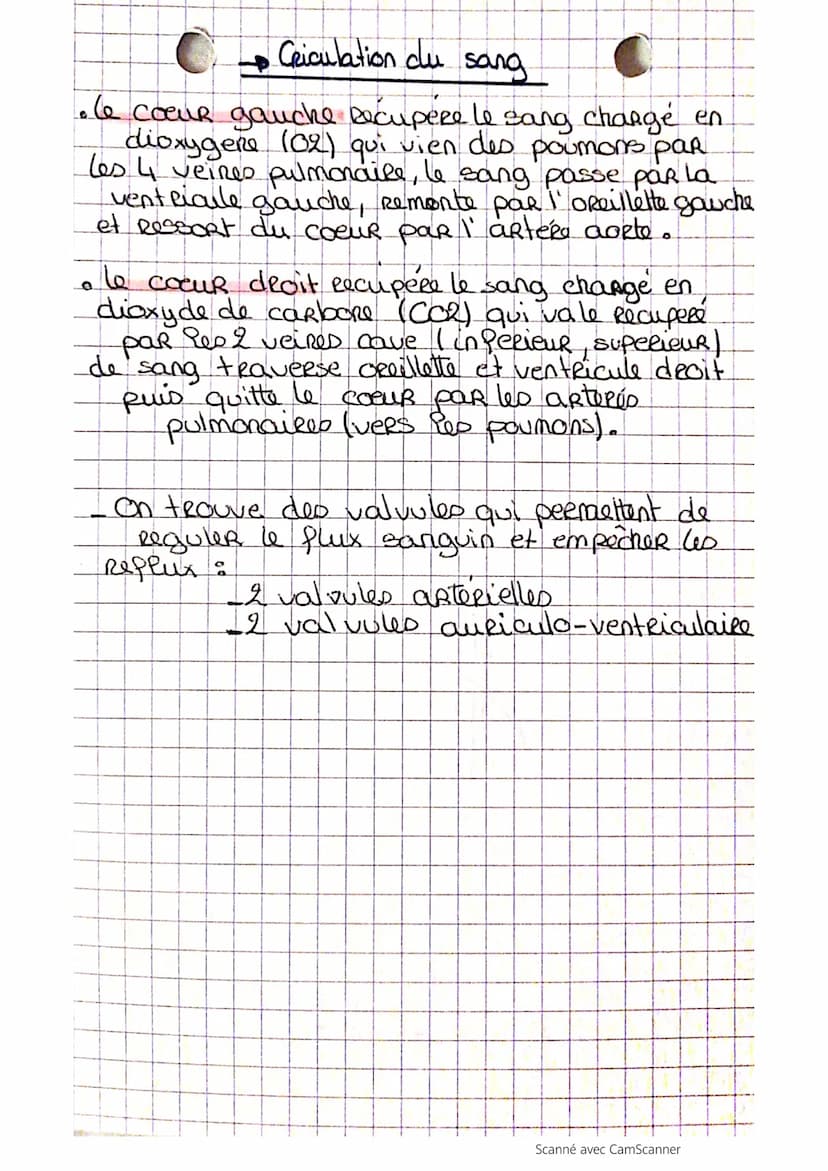 → Circulation du sang
• le coeur gauche récupère le sang chargé en
dioxygène (O2) qui vien des poumons par
les 4 veines pulmonaire, le sang passe par la
ventricule gauche, remonte par l'oreillette gauche
et ressort du coeur par l'artère aorte.
• le coeur droit récupère le sang chargé en
dioxyde de carbone (CO2) qui va le récupéré
par les 2 veines cave (inferieur, superieur)
de sang traverse oreillette et ventricule droit
puis quitte le coeur par les artères
pulmonaires (vers les poumons).
- On trouve des valvules qui permettent de
reguler le flux sanguin et empêcher les
reflux :
- 2 valvules artérielles
- 2 valvules auriculo-ventriculaire
Scanné avec CamScanner